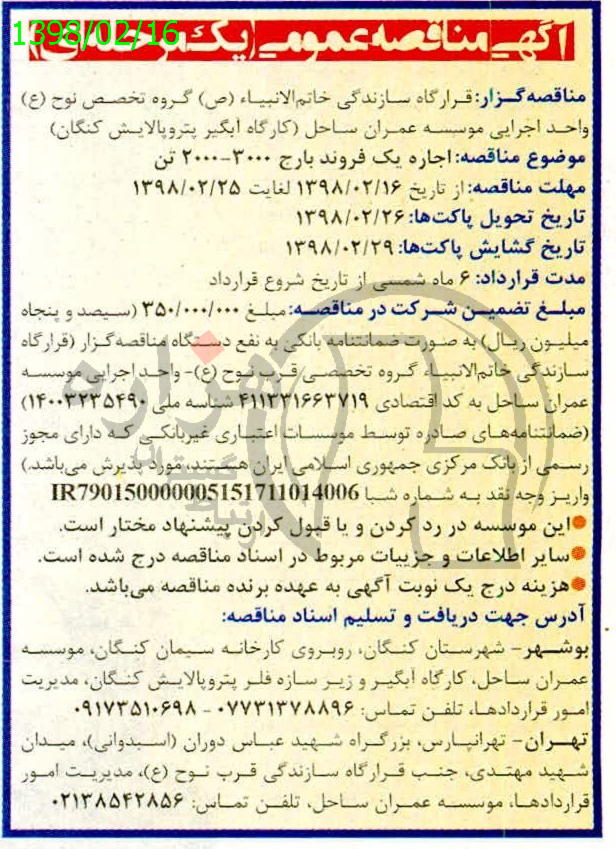 1398/02/16
آگهی مناقصه عمومی (یک مرحله‌ای)
مناقصه‌گزار: قرارگاه سازندگی خاتم‌الانبیاء (ص) گروه تخصص نوح (ع)
واحد اجرایی موسسه عمران ساحل (کارگاه آبگیر پتروپالایش کنگان)
موضوع مناقصه: اجاره یک فروند بارج ۳۰۰۰-۲۰۰۰ تن
مهلت مناقصه: از تاریخ ۱۳۹۸/۰۲/۱۶ لغایت ۱۳۹۸/۰۲/۲۵
تاریخ تحویل پاکت‌ها: ۱۳۹۸/۰۲/۲۶
تاریخ گشایش پاکت‌ها: ۱۳۹۸/۰۲/۲۹
مدت قرارداد: ۶ ماه شمسی از تاریخ شروع قرارداد
مبلغ تضمین شرکت در مناقصه: مبلغ ۳۵۰/۰۰۰/۰۰۰ (سیصد و پنجاه
میلیون ریال) به صورت ضمانتنامه بانکی به نفع دستگاه مناقصه‌گزار (قرارگاه
سازندگی خاتم‌الانبیاء گروه تخصصی قرب نوح (ع)- واحد اجرایی موسسه
عمران ساحل به کد اقتصادی ۴۱۱۳۳۱۶۶۳۷۱۹ شناسه ملی ۱۴۰۰۳۲۳۵۴۹۰)
(ضمانتنامه‌های صادره توسط موسسات اعتباری غیربانکی که دارای مجوز
رسمی از بانک مرکزی جمهوری اسلامی ایران هستند، مورد پذیرش می‌باشد.)
واریز وجه نقد به شماره شبا IR790150000005151711014006
●این موسسه در رد کردن و یا قبول کردن پیشنهاد مختار است.
●سایر اطلاعات و جزییات مربوط در اسناد مناقصه درج شده است.
●هزینه درج یک نوبت آگهی به عهده برنده مناقصه می‌باشد.
آدرس جهت دریافت و تسلیم اسناد مناقصه:
بوشهر- شهرستان کنگان، روبروی کارخانه سیمان کنگان، موسسه
عمران ساحل، کارگاه آبگیر و زیر سازه فلر پتروپالایش کنگان، مدیریت
امور قراردادها، تلفن تماس: ۰۷۷۳۱۳۷۸۸۹۶ - ۰۹۱۷۳۵۱۰۶۹۸
تهران- تهرانپارس، بزرگراه شهید عباس دوران (اسبدوانی)، میدان
شهید مهتدی، جنب قرارگاه سازندگی قرب نوح (ع)، مدیریت امور
قراردادها، موسسه عمران ساحل، تلفن تماس: ۰۲۱۳۸۵۴۲۸۵۶
هزاره